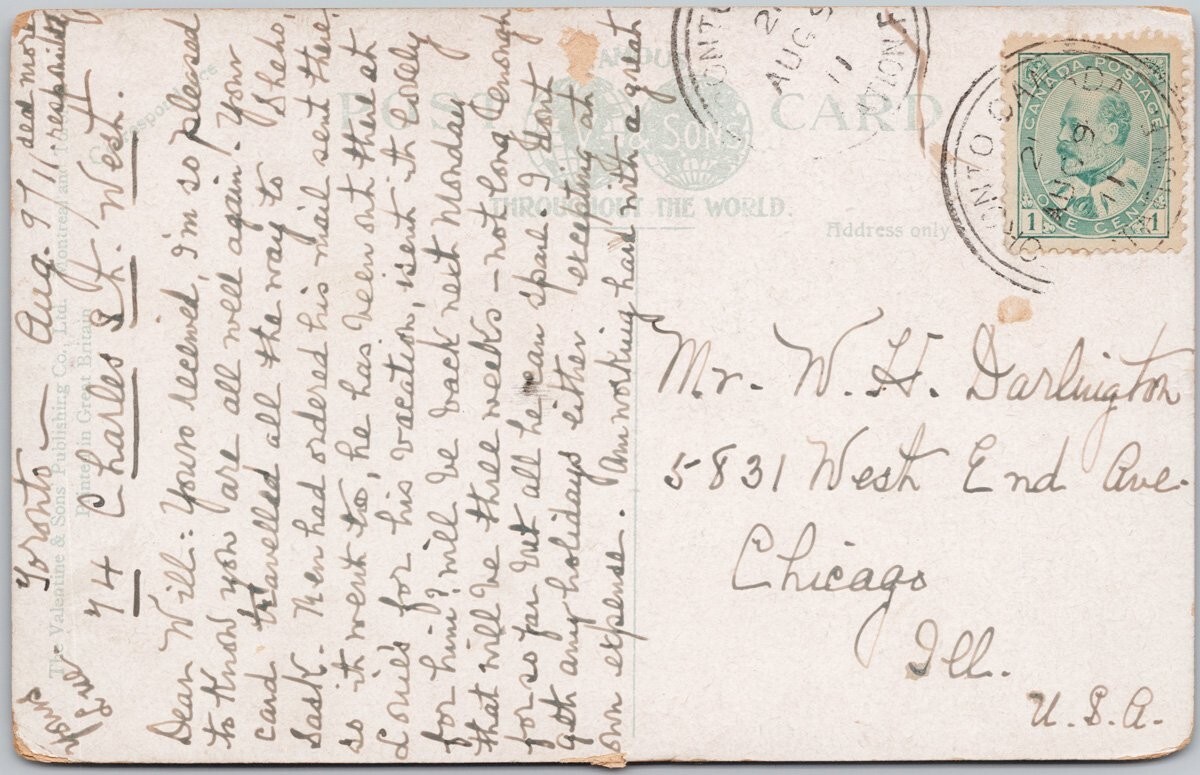 Toronto - Aug. 9/11
74 Charles St. West.
Dear Will: Yours received, I'm so pleased
to know you are all well again - Your
card travelled all the way to Sheho,
Sask. Men had ordered his mail sent there
so it went to, he has been out there at
Louie's for his vacation, isn't it Lovely
for him? Will be back next Monday
that will be three weeks - not long enough
for so far but all he can spare. I don't
get any holidays either excepting at
own expense. Am working hard with a great
ded more
responsibility
Yours
POST CARD
FAMOUS
THROUGHOUT THE WORLD.
& SONS
Address only
Correspondence
The Valentine & Sons Publishing Co., Ltd. Montreal and Toronto
Printed in Great Britain
AUG 9
11
STATION F
CANADA POSTAGE
1 ONE CENT 1
TORONTO CANADA
Mr. W. H. Darlington
5831 West End Ave.
Chicago
Ill.
U.S.A.